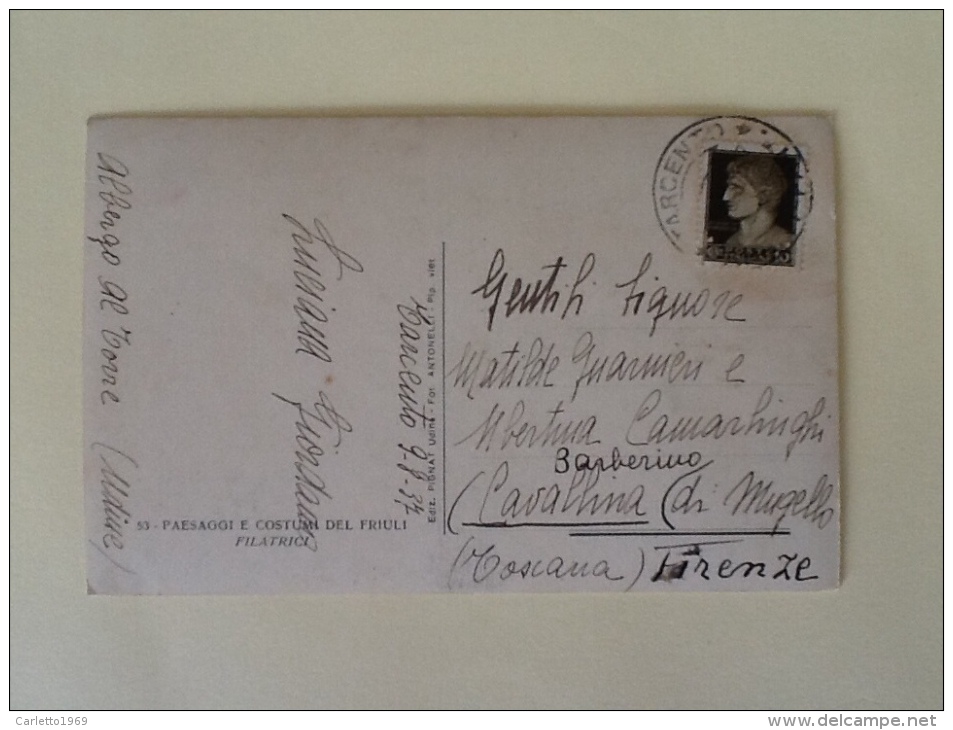 TARCENTO
Gentili Signore
Matilde Guarnieri e
Ubertina Camarlinghi
Barberino
(Cavallina (di Mugello
(Toscana) Firenze
Tarcento 9-8-34
Luciana Giordano
Albergo al Torre (Udine)
Ediz. PIGNAT Udine - Fot. ANTONELLI - Rip. viet.
53 - PAESAGGI E COSTUMI DEL FRIULI
FILATRICI
Carletto1969
delcampe.net